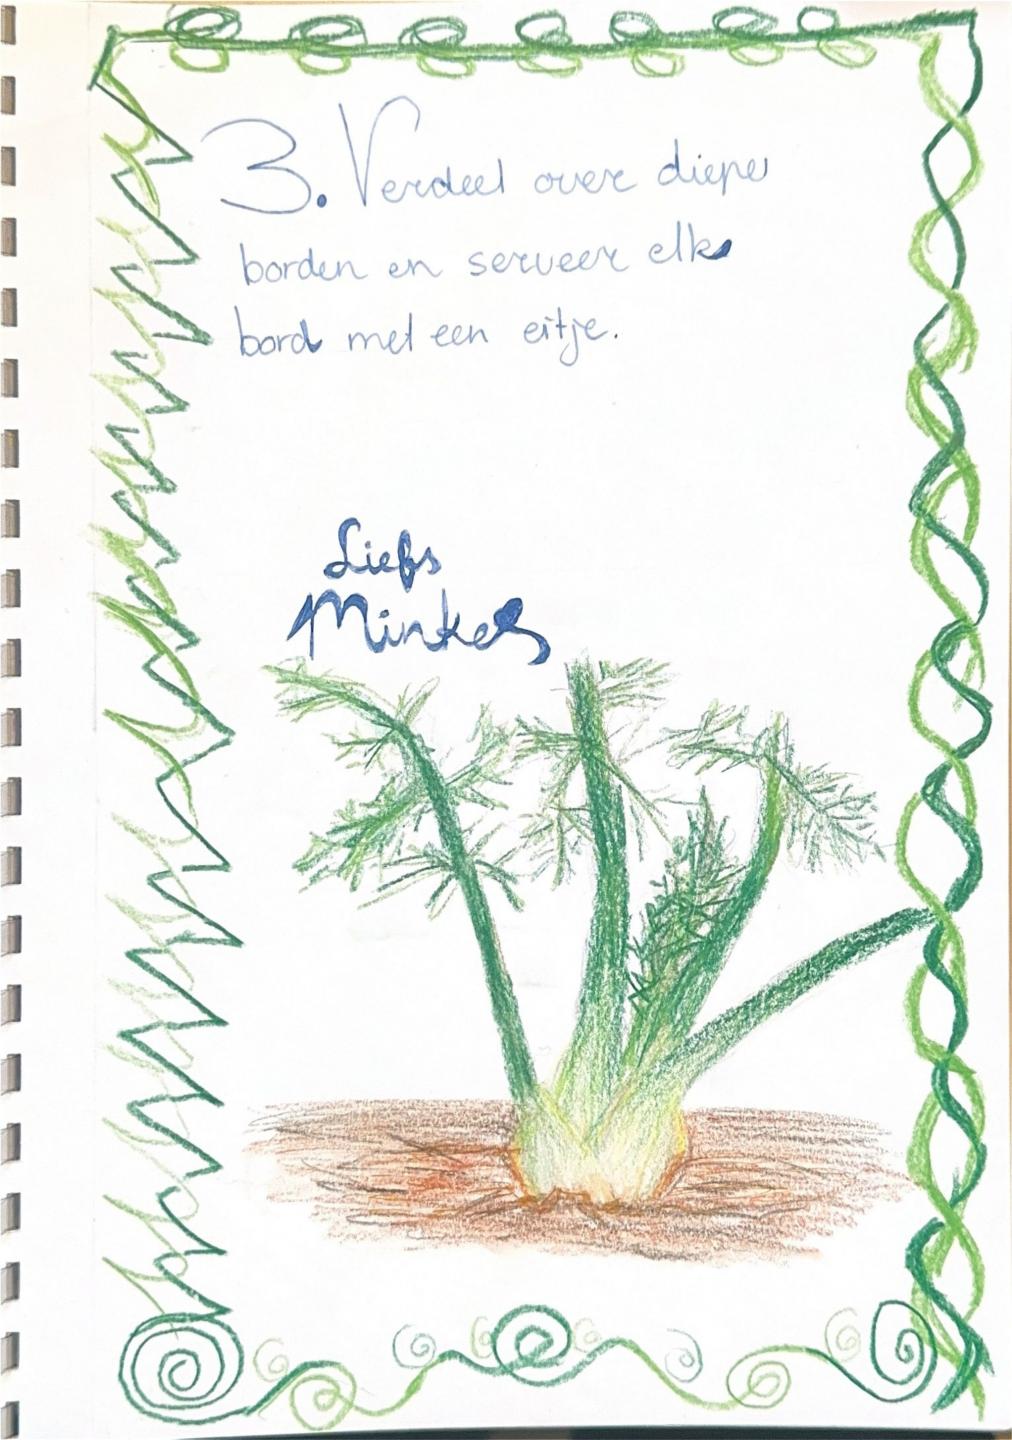 3. Verdeel over diepe
borden en serveer elk
bord met een eitje.
Liefs
Minke